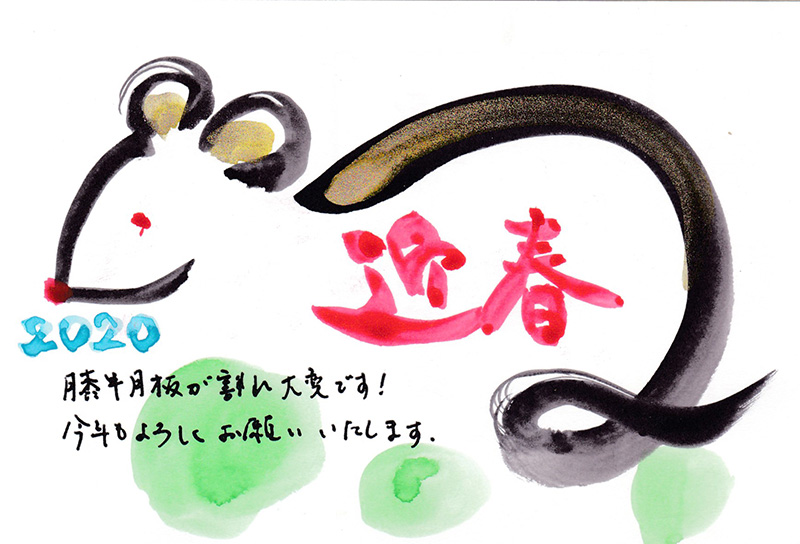 迎春
2020
膝半月板が割れ大変です!
今年もよろしくお願いいたします.